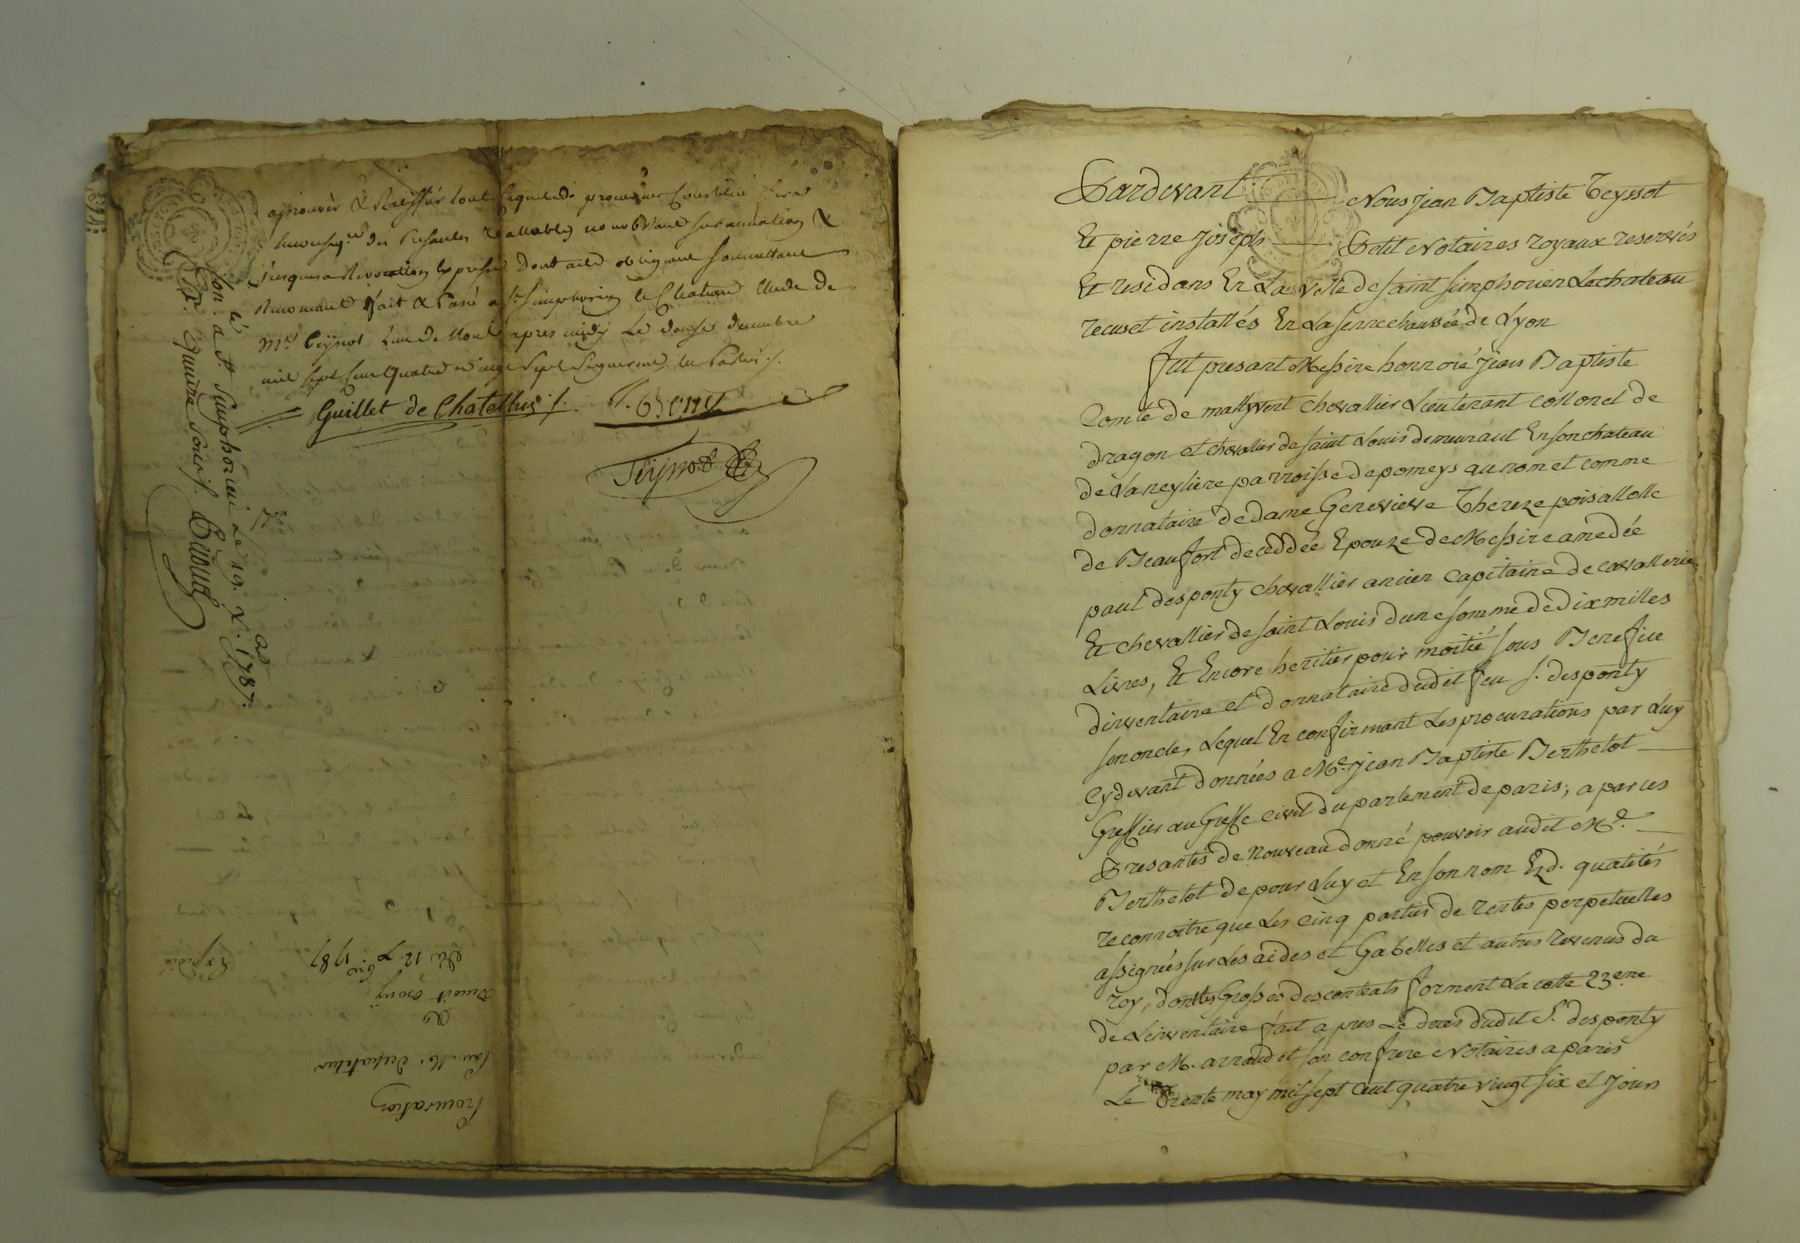 aprouver & Ratiffier tout ce que led. procureur Constitué fera
En vertu des Presentes Vallables nonobstant surannation &
Jusques a Revocation Expresse dont acte obligeant soumettant
Renonceant fait & Passé a St. Simphorien le Chateau Etude de
Me. Teyssot l'un de Nous apres midy Le douze decembre
mil sept cent quatre vingt sept Signeront les Parties ./.
Guillet de Chatellus ./.
Teyssot
Con. lé a St. Simphorien Le 19. Xbre. 1787.
Rx. quinze sols ./.
Procuration
Par M.
a
Benoit
Du 12 Xbre 1787
Expedié
Pardevant Nous jean Baptiste Teyssot
Et pierre joseph Petit Notaires royaux reservés
Et residans En La ville de saint simphorien Lechateau
recus et installés En La senechaussée de Lyon
fut presant Messire honnoré jean Baptiste
Comte de mallyvert chevallier Lieutenant collonel de
dragon et chevallier de saint Louis demeurant En son chateau
de Laneyliere parroisse de pomeys au nom et comme
donnataire de dame Genevieve Thereze poisallolle
de Beaufort deceddée Epouze de Messire amedée
paul desponty chevallier ancien capitaine de cavallerie
Et chevallier de saint Louis dune somme de Dix milles
Livres, Et Encore heritier pour moitié sous Benefice
dinventaire et donnataire dudit feu s. desponty
son oncle, Lequel En confirmant Les procurations par Luy
cydevant données a Me. jean Baptiste Berthelot
Greffier au Greffe civil du parlement de paris, a par ces
Presantes de Nouveau donné pouvoir audit Me.
Berthelot de pour Luy et En son nom Ezd. qualités
reconnoitre que Les cinq parties de rentes perpetuelles
assignées sur Les aides et Gabelles et autres revenus du
roy, dont les Grosses des contrats forment La cotte 23eme
de Linventaire fait apres Le deces dudit Sr. desponty
par M. arnaud et son confrere Notaires a paris
Le Trente may mil sept cent quatre vingt six et jours